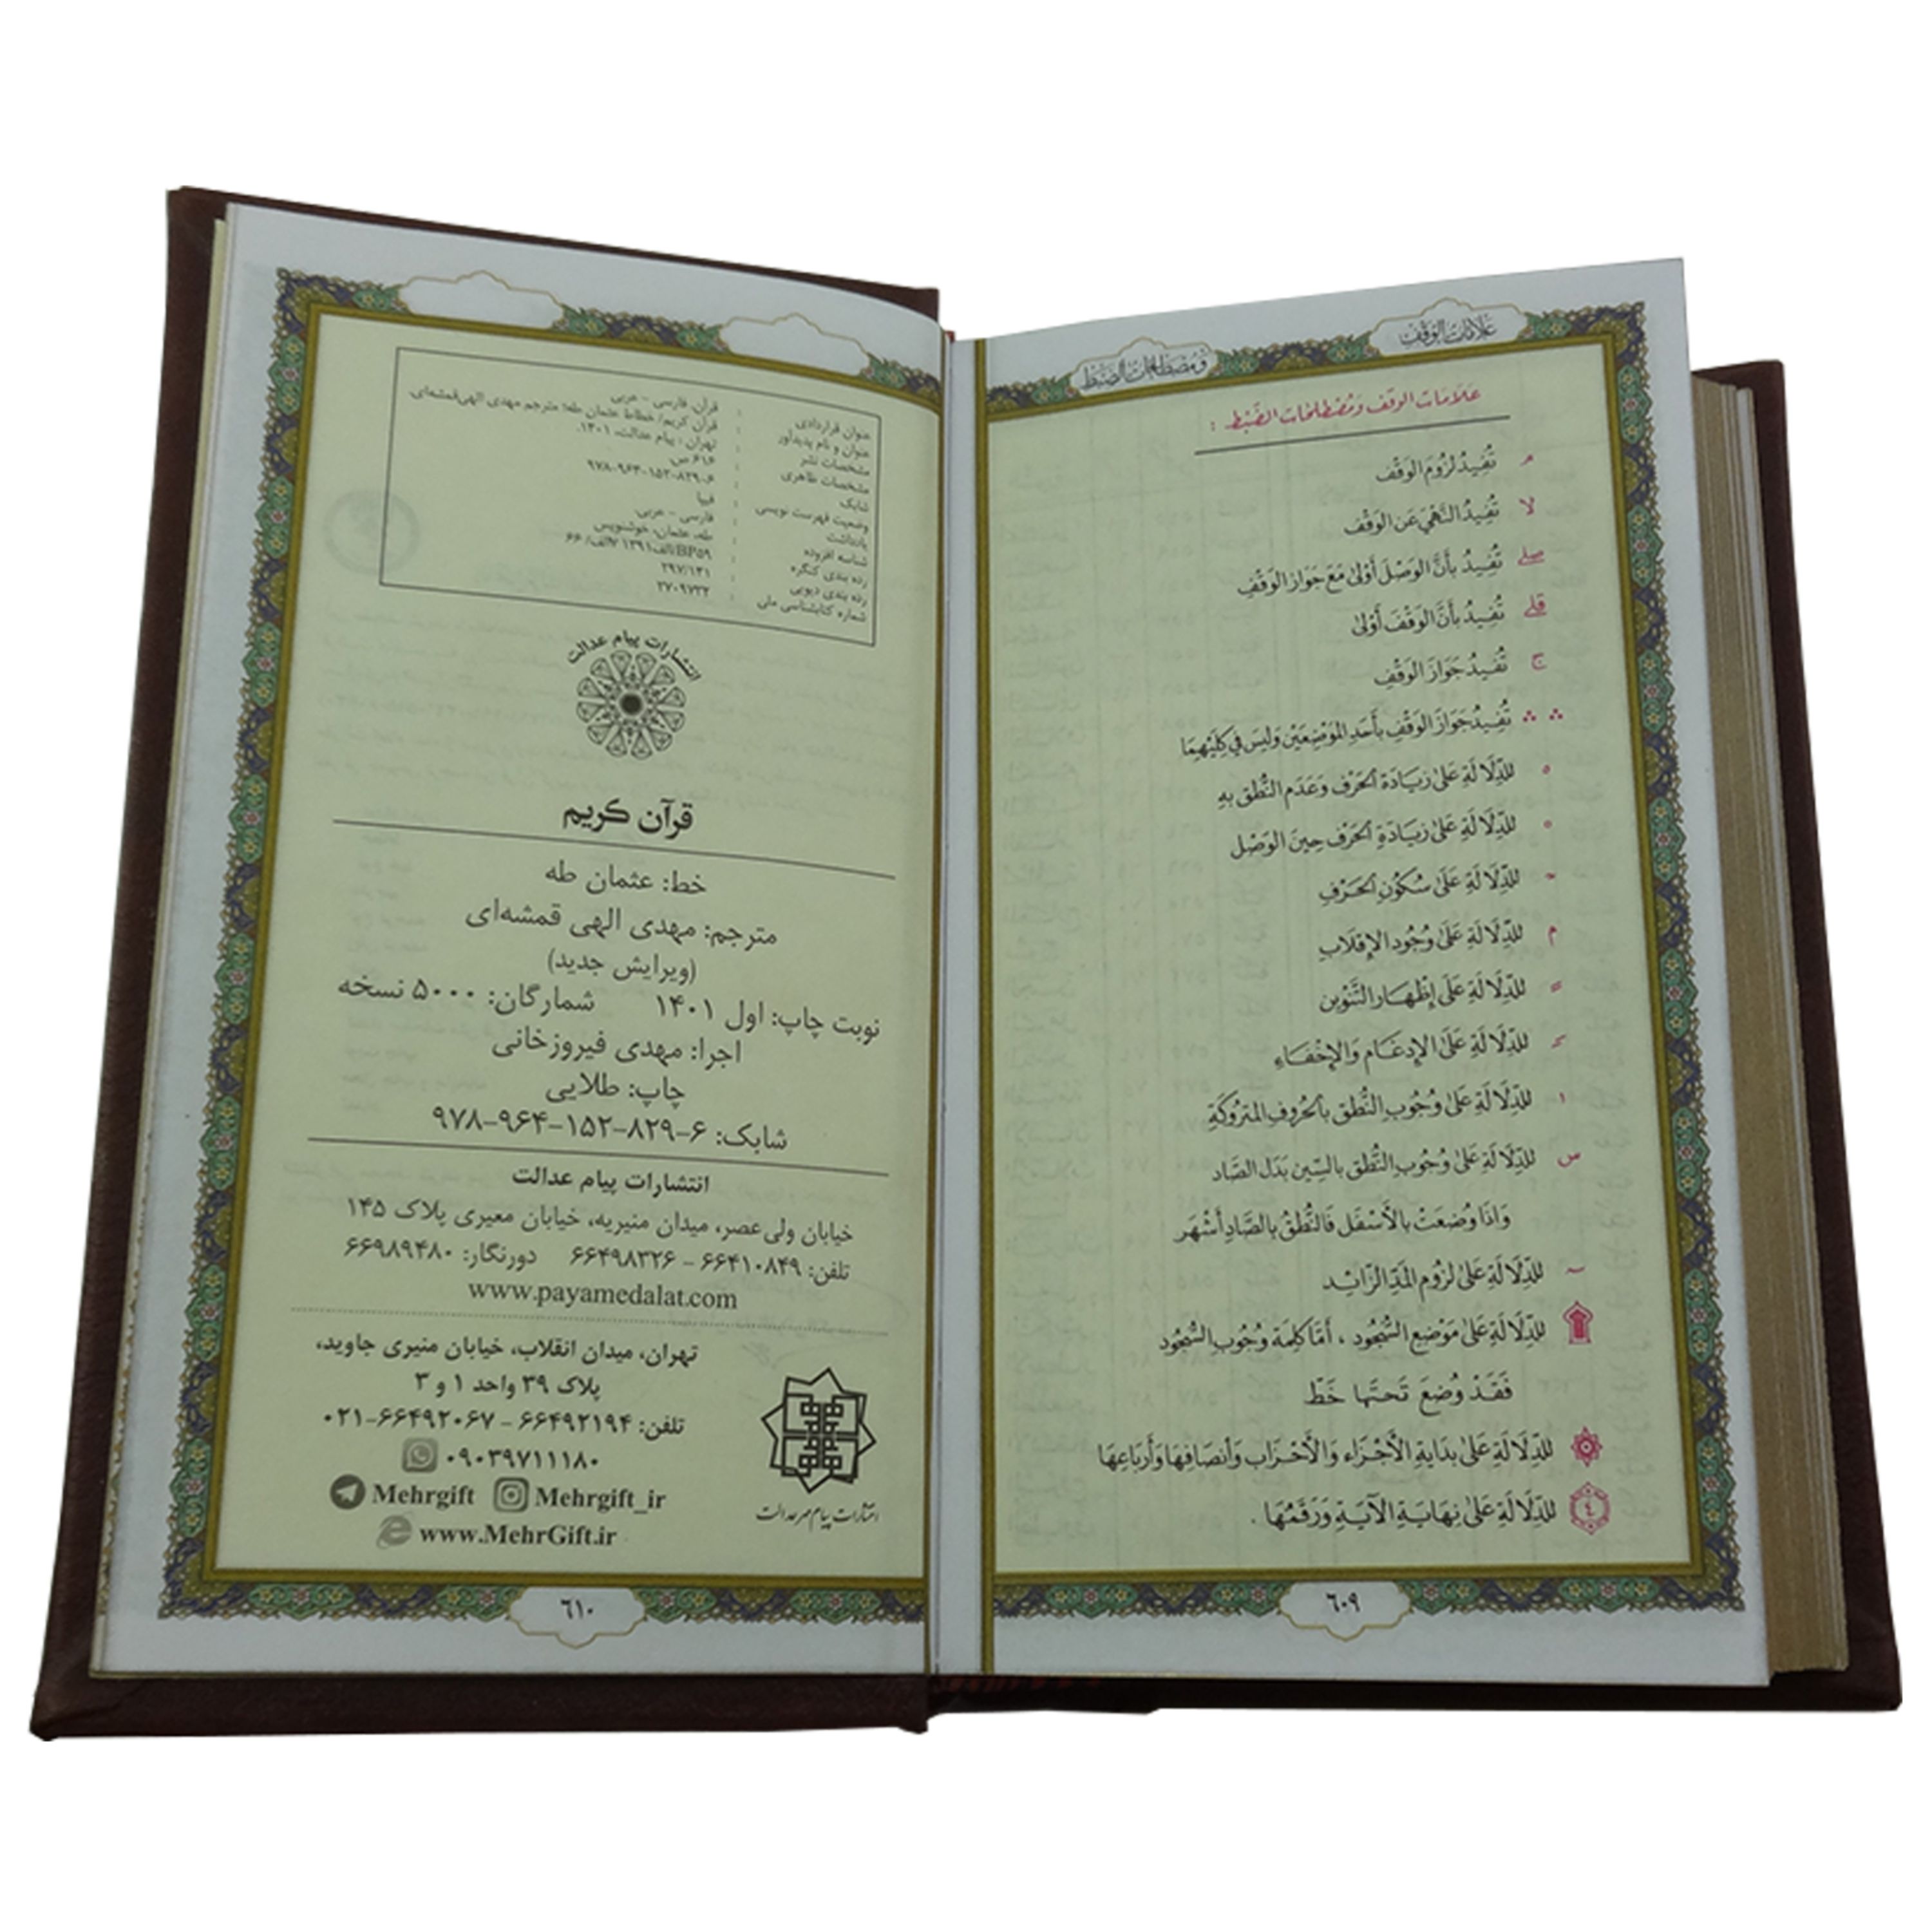 علامات الوقف
ومصطلحات الضبط
علامات الوقف ومصطلحات الضبط :
م تُفِيدُ لُزُومَ الوَقْف
لا تُفِيدُ النَّهْيَ عَن الوَقْف
صلے تُفِيدُ بأنَّ الوَصْلَ أَوْلىٰ مَعَ جَوَازِ الوَقْفِ
قلے تُفِيدُ بأنَّ الوَقْفَ أَوْلىٰ
ج تُفِيدُ جَوَازَ الوَقْفِ
∴ ∴ تُفِيدُ جَوَازَ الوَقْفِ بأَحَدِ المَوْضِعَيْن وَلَيْسَ في كِلَيْهِمَا
للدِّلَالَةِ عَلىٰ زِيَادَة الحَرْف وَعَدَم النُّطْق بهِ
للدِّلَالَةِ عَلىٰ زِيَادَةِ الحَرْف حِينَ الوَصْل
للدِّلَالَةِ عَلىٰ سُكُون الحَرْفِ
م للدِّلَالَةِ عَلىٰ وُجُود الإقْلَابِ
للدِّلَالَةِ عَلىٰ إظْهَار التَّنْوِين
للدِّلَالَةِ عَلىٰ الإدغَام وَالإخْفَاءِ
ا للدِّلَالَةِ عَلىٰ وُجُوب النُّطق بالحُرُوف المَتْرُوكَةِ
س للدِّلَالَةِ عَلىٰ وُجُوب النُّطْق بالسِّين بَدَل الصَّاد
وَاذَا وُضِعَتْ بالأَسْفَل فَالنُّطْقُ بالصَّادِ أَشْهَر
للدِّلَالَةِ عَلىٰ لزُوم المَدِّ الزَّايِد
للدِّلَالَةِ عَلىٰ مَوْضِع السُّجُود ، أمَّا كلِمَة وُجُوب السُّجُود
فَقَدْ وُضِعَ تَحتَهَا خَطّ
للدِّلَالَةِ عَلىٰ بدَايَةِ الأَجْزَاء وَالأَحْزَاب وَأَنصَافِهَا وَأَربَاعِهَا
٤ للدِّلَالَةِ عَلىٰ نِهَايَةِ الآيَةِ وَرَقْمُهَا .
٦٠٩
عنوان قراردادی : قرآن. فارسی - عربی
عنوان و نام پدیدآور : قرآن کریم/ خطاط عثمان طه؛ مترجم مهدی الهی‌قمشه‌ای
مشخصات نشر : تهران : پیام عدالت، ۱۴۰۱.
مشخصات ظاهری : ۶۱۶ ص.
شابک : ۹۷۸-۹۶۴-۱۵۲-۸۲۹-۶
وضعیت فهرست نویسی : فیپا
یادداشت : فارسی - عربی.
شناسه افزوده : طه، عثمان، خوشنویس
رده بندی کنگره : BP۵۹
رده بندی دیویی : ۲۹۷/۱۴۱
شماره کتابشناسی ملی : ۲۷۰۹۷۳۲
انتشارات پیام عدالت
قرآن کریم
خط: عثمان طه
مترجم: مهدی الهی قمشه‌ای
(ویرایش جدید)
نوبت چاپ: اول ۱۴۰۱ شمارگان: ۵۰۰۰ نسخه
اجرا: مهدی فیروزخانی
چاپ: طلایی
شابک: ۶-۸۲۹-۱۵۲-۹۶۴-۹۷۸
انتشارات پیام عدالت
خیابان ولی‌عصر، میدان منیریه، خیابان معیری پلاک ۱۴۵
تلفن: ۶۶۴۱۰۸۴۹ - ۶۶۴۹۸۳۲۶ دورنگار: ۶۶۹۸۹۴۸۰
www.payamedalat.com
تهران، میدان انقلاب، خیابان منیری جاوید،
پلاک ۳۹ واحد ۱ و ۳
تلفن: ۶۶۴۹۲۱۹۴ - ۶۶۴۹۲۰۶۷-۰۲۱
۰۹۰۳۹۷۱۱۱۸۰
Mehrgift Mehrgift_ir
www.MehrGift.ir
انتشارات پیام مهر عدالت
٦١٠